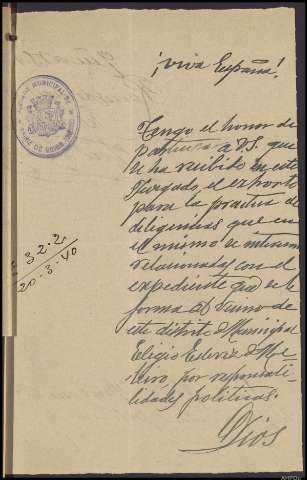 ¡Viva España!
Tengo el honor de
participar a V.S. que
se ha recibido en este
Juzgado, el exhorto
para la practica de
diligencias que en
el mismo se interesan
relacionadas con el
expediente que se le
forma al vecino de
este distrito Municipal
Eligio Estevez
por responsabi-
lidades politicas.
Dios
32.2
20.3.40
JUZGADO MUNICIPAL
AHPOU